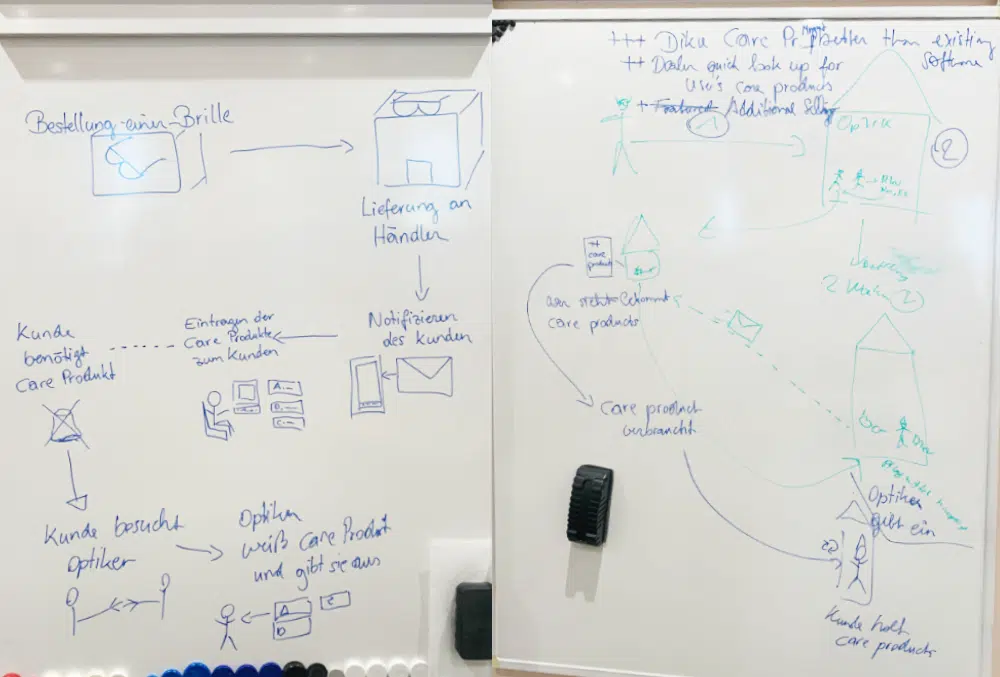 Bestellung einer Brille
Lieferung an
Händler
Notifizieren
des Kunden
Eintragen der
Care Produkte
zum Kunden
A.
B.
C.
Kunde
benötigt
Care Produkt
Kunde besucht
Optiker
Optiker
weiß Care Produkt
und gibt sie aus
A
D
C
+++ Dika Care Pr better than existing
software
++ Dealer quick look up for
user's care products
+ Featured Additional Selling
1
Optik
2
++
care
products
care products
2
Care product
verbraucht
Optiker
gibt ein
Kunde holt
care products